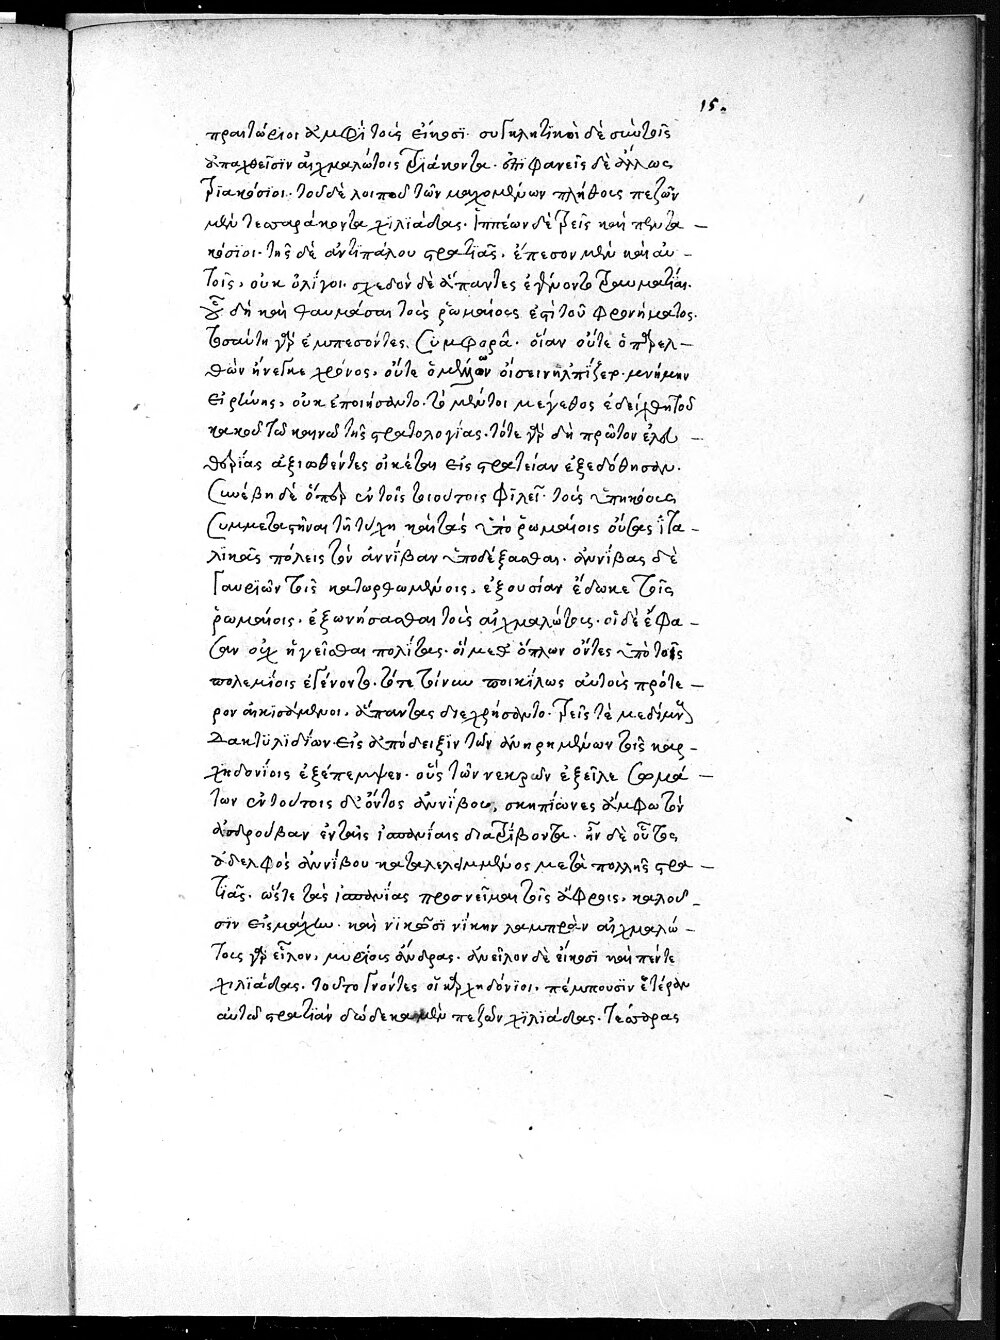 15.
πραιτώριοι ἀμφὶ τοὺς εἴκοσι. συγκλητικοὶ δὲ σὺν τοῖς
ἀπαχθεῖσιν αἰχμαλώτοις τριάκοντα. ἐπιφανεῖς δὲ ἄλλως
τριακόσιοι. τοῦ δὲ λοιποῦ τῶν μαχομένων πλήθους πεζῶν
μὲν τεσσαράκοντα χιλιάδας. ἱππέων δὲ τρεῖς καὶ πεντα –
κόσϊοι. τῆς δὲ ἀντιπάλου στρατιᾶς, ἔπεσον μὲν καὶ αὐ –
τοῖς, οὐκ ὀλίγοι. σχεδὸν δὲ ἅπαντες ἐγένοντο τραυματίαι.
οὗ δὴ καὶ θαυμάσαι τοὺς ῥωμαίους ἐπὶ τοῦ φρονήματος.
τοσαύτη γὰρ ἐμπεσόντες συμφορᾶ. οἵαν οὔτε ὁ παρελ –
θὼν ἤνεγκε χρόνος, οὔτε ὁ μέλλων οἴσειν ἠλπίζετο. μνήμην
εἰρήνης, οὐκ ἐποιήσαντο. τὸ μέντοι μέγεθος ἐδείχθη τοῦ
κακοῦ τῶ καινῶ τῆς στρατολογίας. τότε γὰρ δὴ πρῶτον ἐλευ –
θερίας ἀξιωθέντες οἰκέται εἰς στρατείαν ἐξεδόθησαν.
συνέβη δὲ ὅπερ ἐν τοῖς τοιούτοις φιλεῖ. τοὺς ὑπηκόους
συμμεταστῆναι τῆ τύχη καὶ τὰς ὑπὸ ῥωμαίοις οὔσας ἰτα –
λικὰς πόλεις τὸν ἀννίβαν ὑποδέξασθαι. ἀννίβας δὲ
γαυριῶν τοῖς κατωρθωμένοις, ἐξουσίαν ἔδωκε τοῖς
ῥωμαίοις. ἐξωνήσασθαι τοὺς αἰχμαλώτους. οἱ δὲ ἔφα –
σαν οὐχ ἡγεῖσθαι πολίτας. οἳ μεθ ὅπλων ὄντες ὑπὸ τοῖς
πολεμίοις ἐγένοντο. τότε τοίνυν ποικίλως αὐτοὺς πρότε –
ρον αἰκισάμενοι. ἅπαντας διεχρήσαντο. τρεῖς τὲ μεδίμνους
δακτυλιδίων εἰς ἀπόδειξιν τῶν ἀνηρημένων τοῖς καρ –
χηδονίοις ἐξέπεμψεν. οὓς τῶν νεκρῶν ἐξεῖλε σωμά –
των ἐν τούτοις δὲ ὄντος ἀννίβου, σκηπίωνες ἄμφω τὸν
ἀσδρούβαν ἐν ταῖς ἱσπανίαις διατρίβοντα. ἦν δὲ οὗτος
ἀδελφὸς ἀννίβου καταλελειμμένος μετὰ πολλῆς στρα –
τιᾶς. ὥστε τὰς ἱσπανίας προσνεῖμαι τοῖς ἄφροις, καλοῦ –
σϊν εἰς μάχην. καὶ νϊκῶσϊ νίκην λαμπρὰν αἰχμαλώ –
τους γὰρ εἷλον, μυρίους ἄνδρας. ἀνεῖλον δὲ εἴκοσϊ καὶ πέντε
χιλιάδας. τοῦτο γνόντες οἱ καρχηδόνϊοι. πέμπουσϊν ἑτέραν
αὐτῶ στρατιὰν δώδεκα μὲν πεζῶν χιλιάδας. τέσσαρας